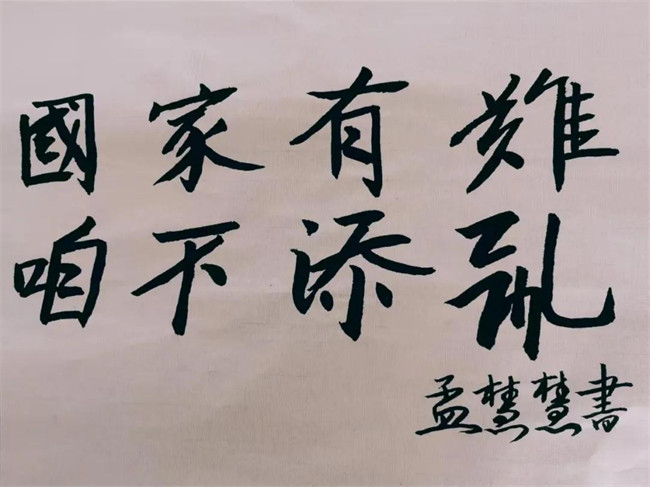 國家有難
咱不添亂
孟慧慧書